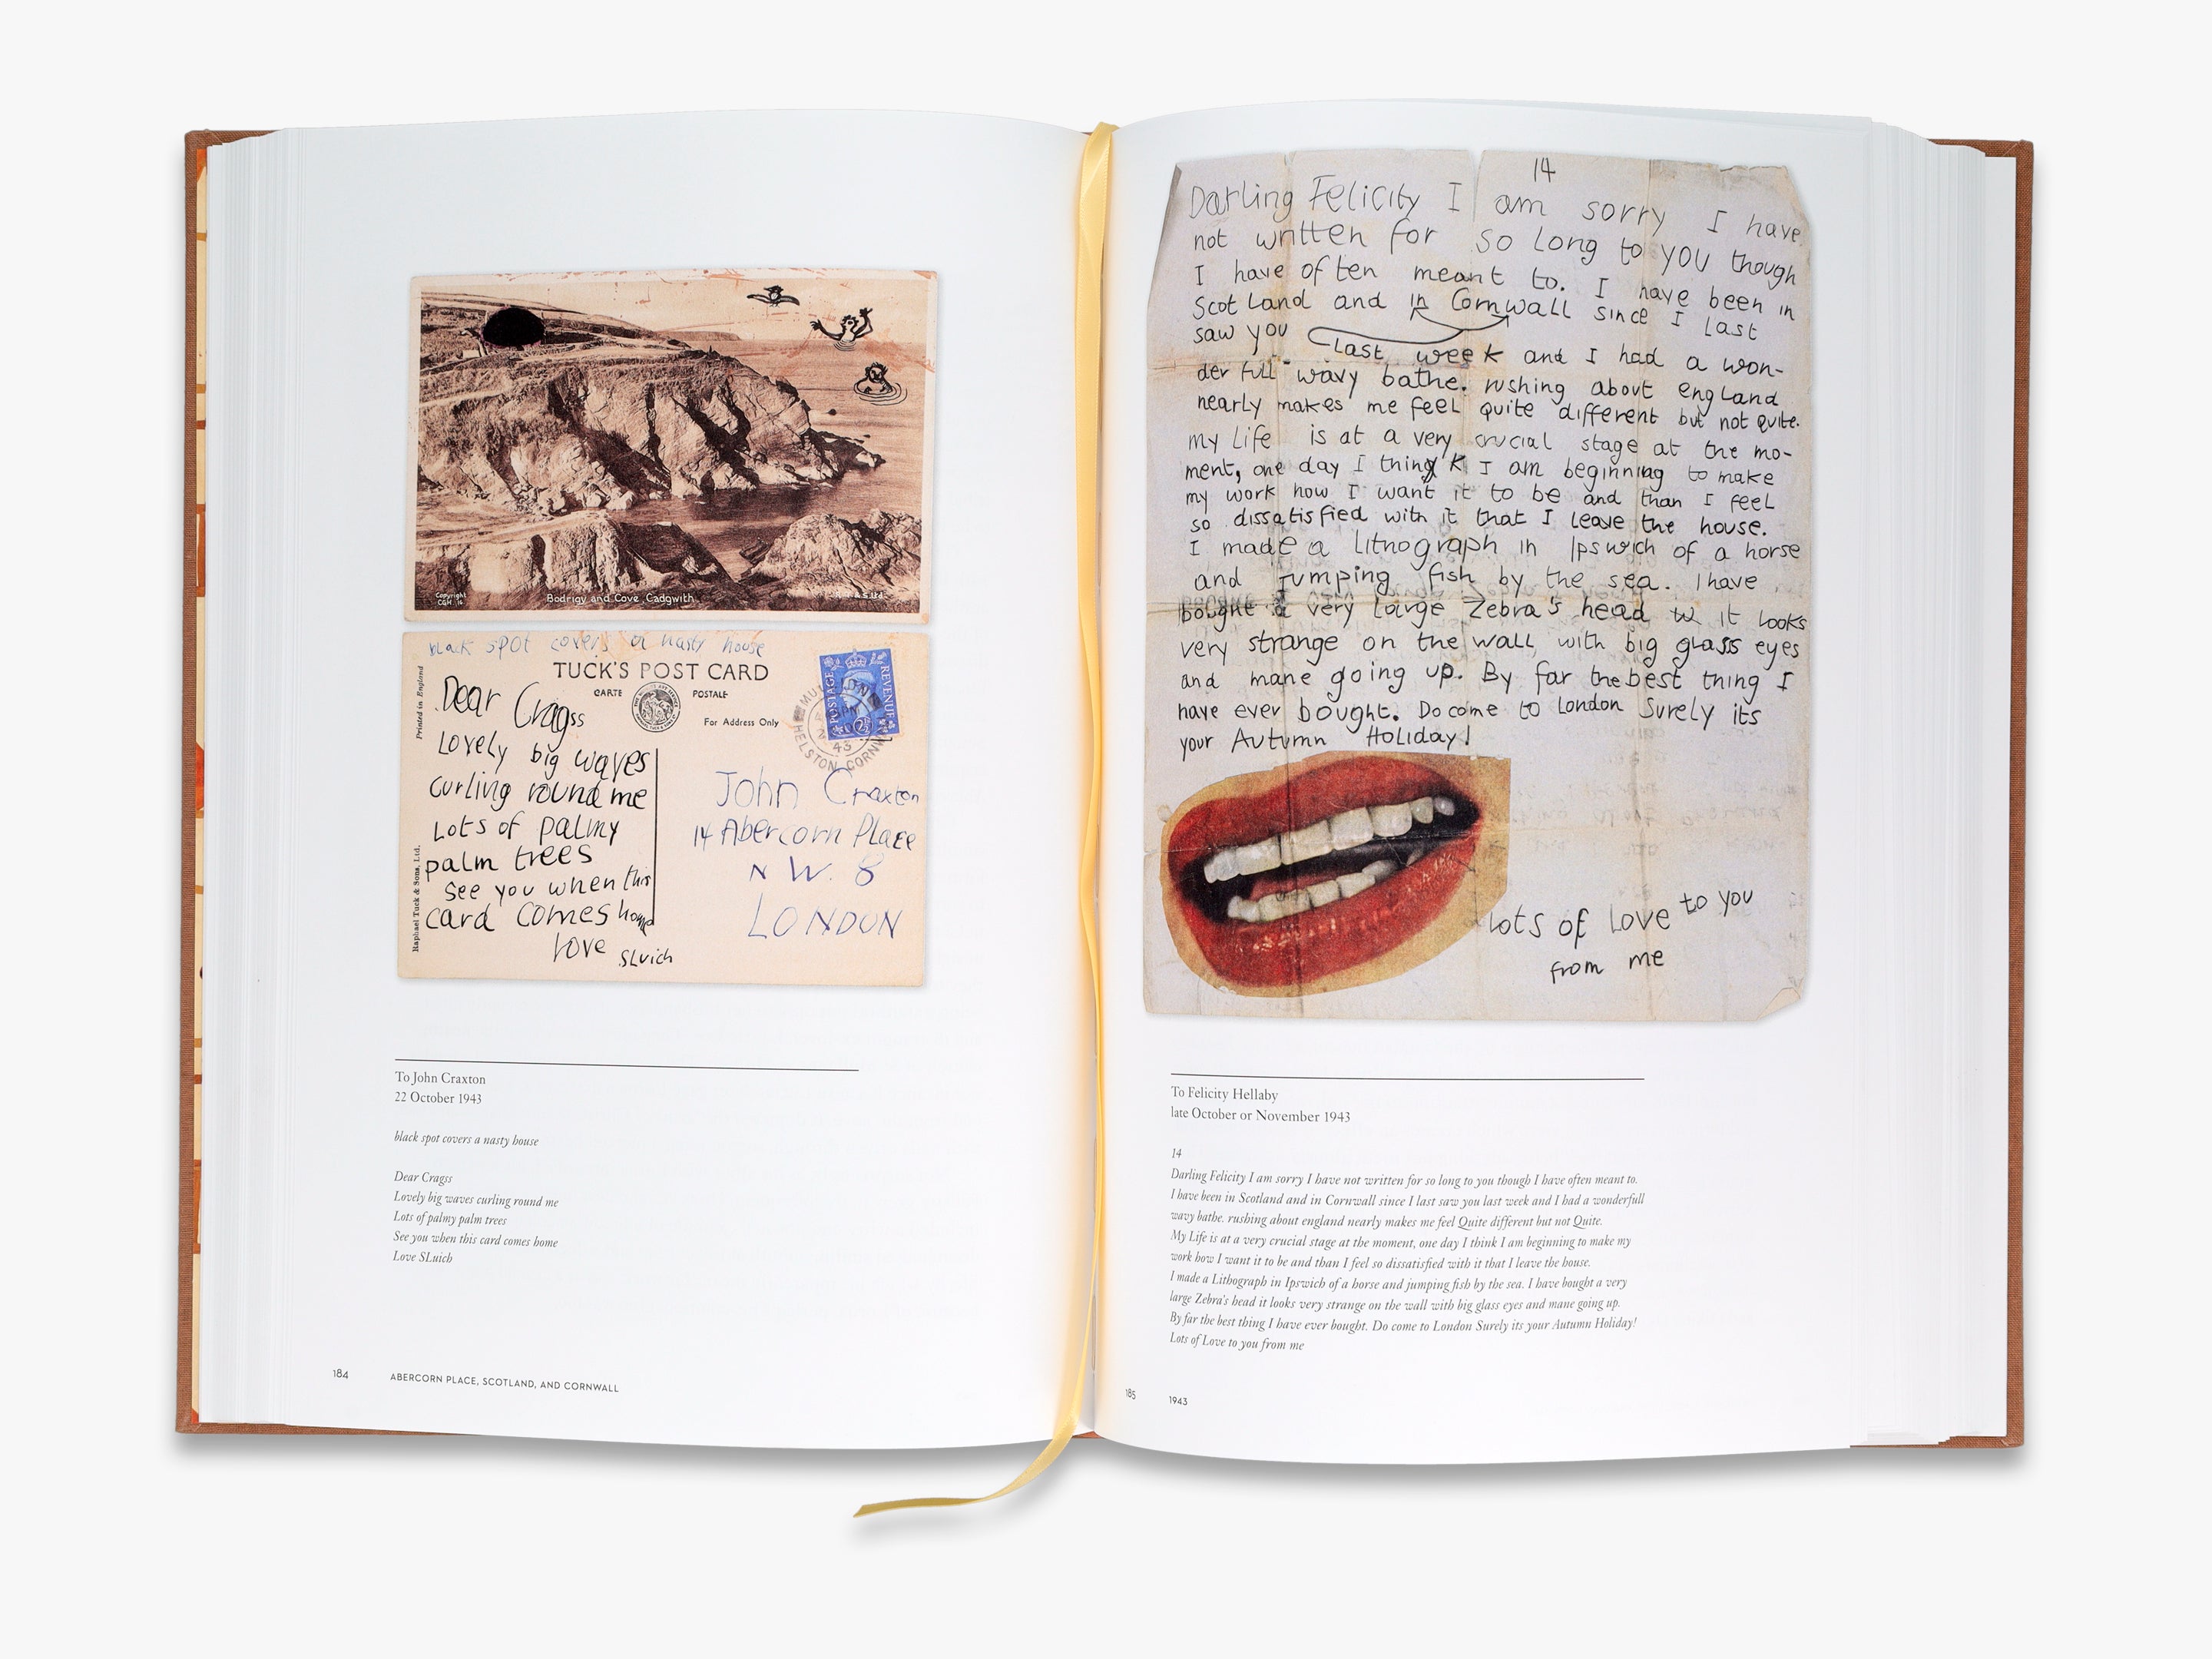 Copyright
CGH. 16
Bodrigy and Cove, Cadgwith
black spot covers a nasty house
TUCK'S POST CARD
CARTE POSTALE
For Address Only
Printed in England
Raphael Tuck & Sons, Ltd.
POSTAGE
REVENUE
2½
43
HELSTON CORNWALL
Dear Cragss
Lovely big waves
curling round me
Lots of palmy
palm trees
See you when this
card comes home
love SLuich
John Craxton
14 Abercorn Place
N W. 8
LONDON
To John Craxton
22 October 1943
black spot covers a nasty house
Dear Cragss
Lovely big waves curling round me
Lots of palmy palm trees
See you when this card comes home
Love SLuich
184 ABERCORN PLACE, SCOTLAND, AND CORNWALL
14
Darling Felicity I am sorry I have
not written for so long to you though
I have often meant to. I have been in
Scotland and in Cornwall since I last
saw you last week and I had a won-
derfull wavy bathe. rushing about england
nearly makes me feel quite different but not quite.
my Life is at a very crucial stage at the mo-
ment, one day I think I am beginning to make
my work how I want it to be and than I feel
so dissatisfied with it that I leave the house.
I made a Lithograph in Ipswich of a horse
and jumping fish by the sea. I have
bought a very large Zebra's head it looks
very strange on the wall with big glass eyes
and mane going up. By far the best thing I
have ever bought. Do come to London Surely its
your Autumn Holiday!
Lots of Love to you
from me
To Felicity Hellaby
late October or November 1943
14
Darling Felicity I am sorry I have not written for so long to you though I have often meant to.
I have been in Scotland and in Cornwall since I last saw you last week and I had a wonderfull
wavy bathe. rushing about england nearly makes me feel Quite different but not Quite.
My Life is at a very crucial stage at the moment, one day I think I am beginning to make my
work how I want it to be and than I feel so dissatisfied with it that I leave the house.
I made a Lithograph in Ipswich of a horse and jumping fish by the sea. I have bought a very
large Zebra's head it looks very strange on the wall with big glass eyes and mane going up.
By far the best thing I have ever bought. Do come to London Surely its your Autumn Holiday!
Lots of Love to you from me
185 1943